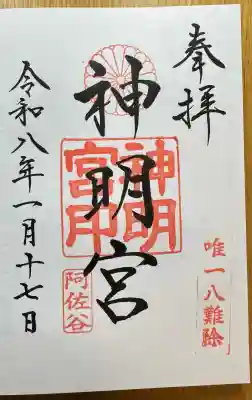 奉拝
唯一八難除
神明宮
神明宮印
阿佐谷
令和八年一月十七日